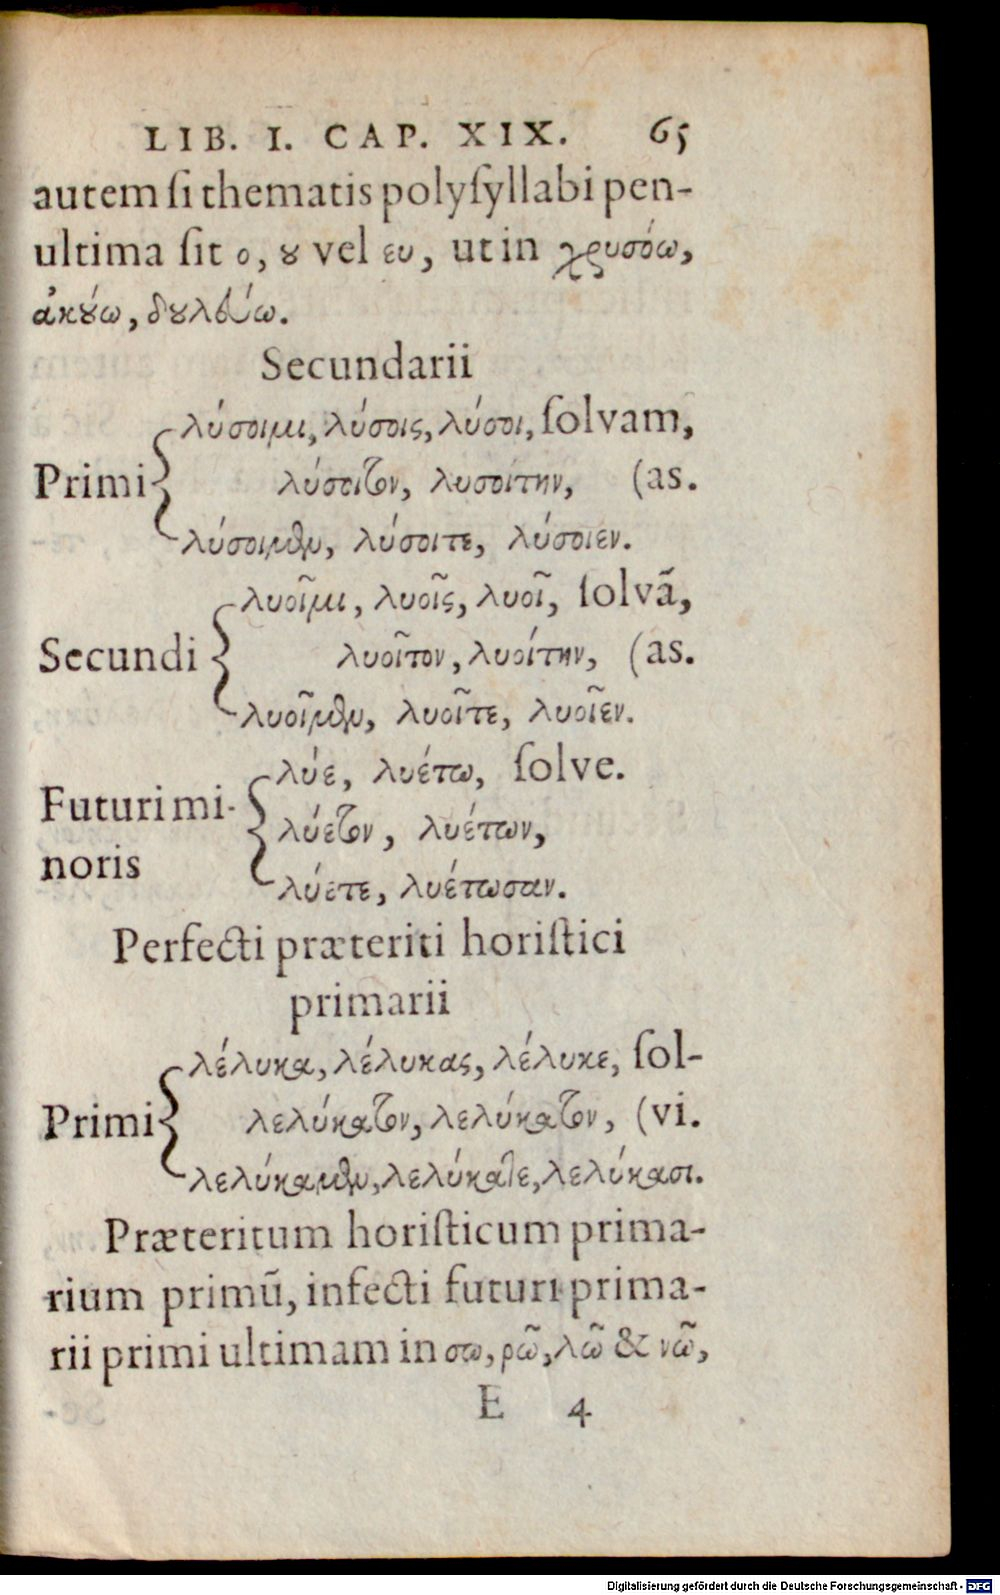 LIB. I. CAP. XIX. 65
autem ſi thematis polyſyllabi pen-
ultima ſit ο, ȣ vel ευ, ut in χρυσόω,
ἀκȣ́ω, δȣλεύω.
Secundarii
λύσοιμι, λύσοις, λύσοι, ſolvam,
Primi λύσοιτον, λυσοίτην, (as.
λύσοιμεν, λύσοιτε, λύσοιεν.
λυοῖμι, λυοῖς, λυοῖ, ſolvã,
Secundi λυοῖτον, λυοίτην, (as.
λυοῖμεν, λυοῖτε, λυοῖεν.
λύε, λυέτω, ſolve.
Futuri mi-
λύετον, λυέτων,
noris
λύετε, λυέτωσαν.
Perfecti præteriti horiſtici
primarii
λέλυκα, λέλυκας, λέλυκε, ſol-
Primi λελύκατον, λελύκατον, (vi.
λελύκαμεν, λελύκατε, λελύκασι.
Præteritum horiſticum prima-
rium primũ, infecti futuri prima-
rii primi ultimam in σω, ρῶ, λῶ & νῶ,
E 4
Digitalisierung gefördert durch die Deutsche Forschungsgemeinschaft - DFG